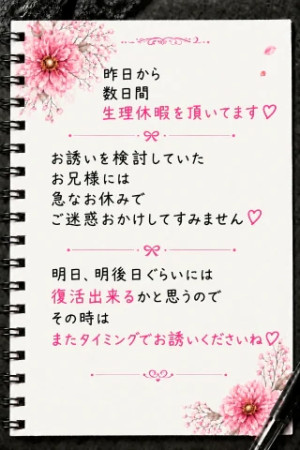 昨日から
数日間
生理休暇を頂いてます♡
お誘いを検討していた
お兄様には
急なお休みで
ご迷惑おかけしてすみません♡
明日、明後日ぐらいには
復活出来るかと思うので
その時は
またタイミングでお誘いくださいね♡